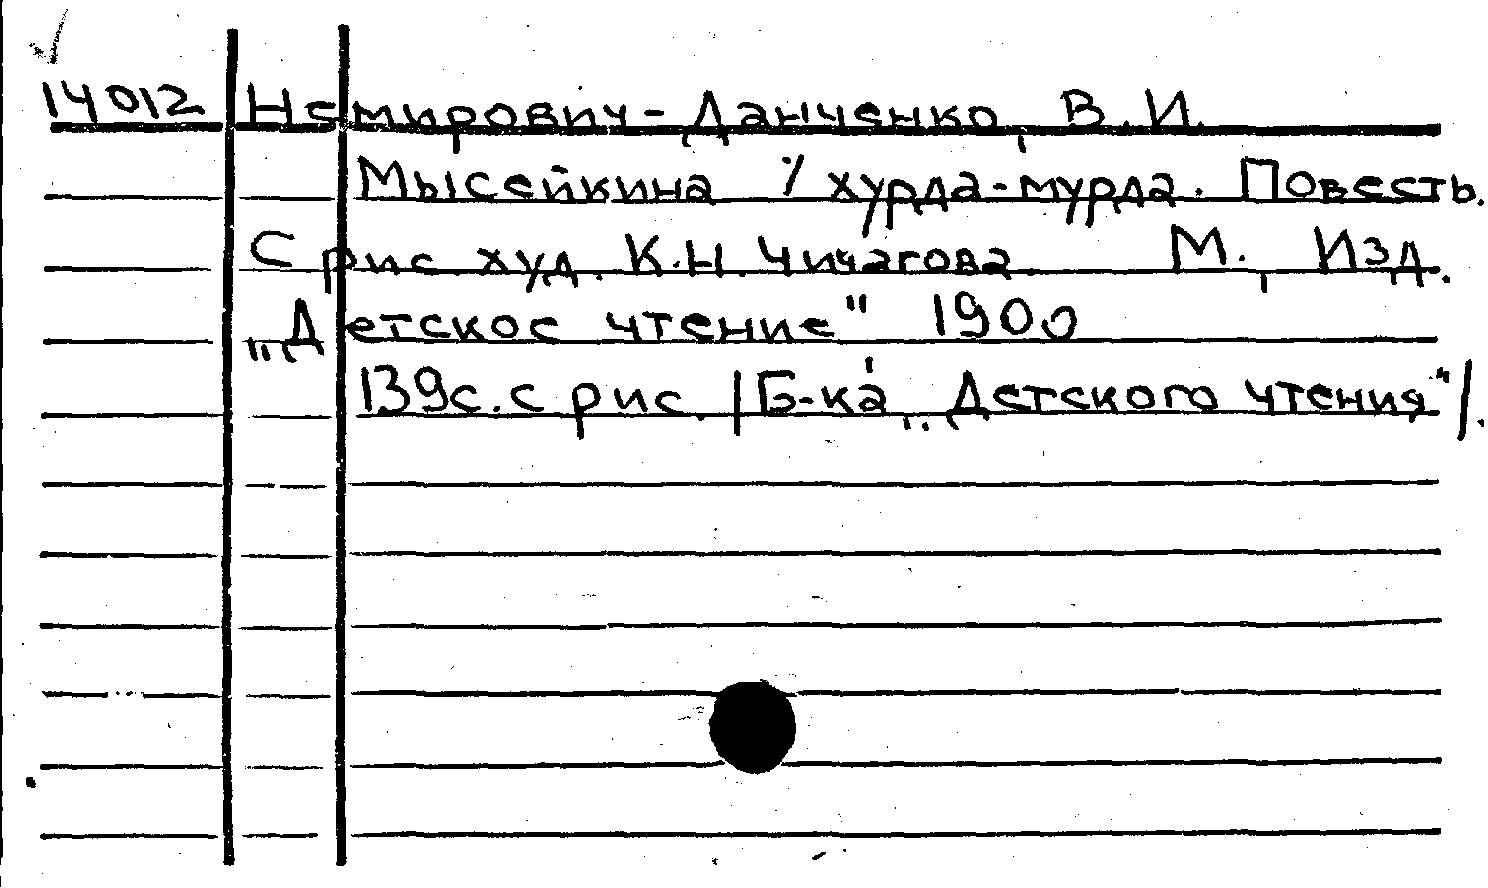 14012 Немирович-Данченко, В.И.
Мысейкина % хурда-мурда. Повесть.
С рис. худ. К.Н. Чичагова. М., Изд.
„Детское чтение" 1900
139с. с рис. /Б-ка „Детского чтения"/.